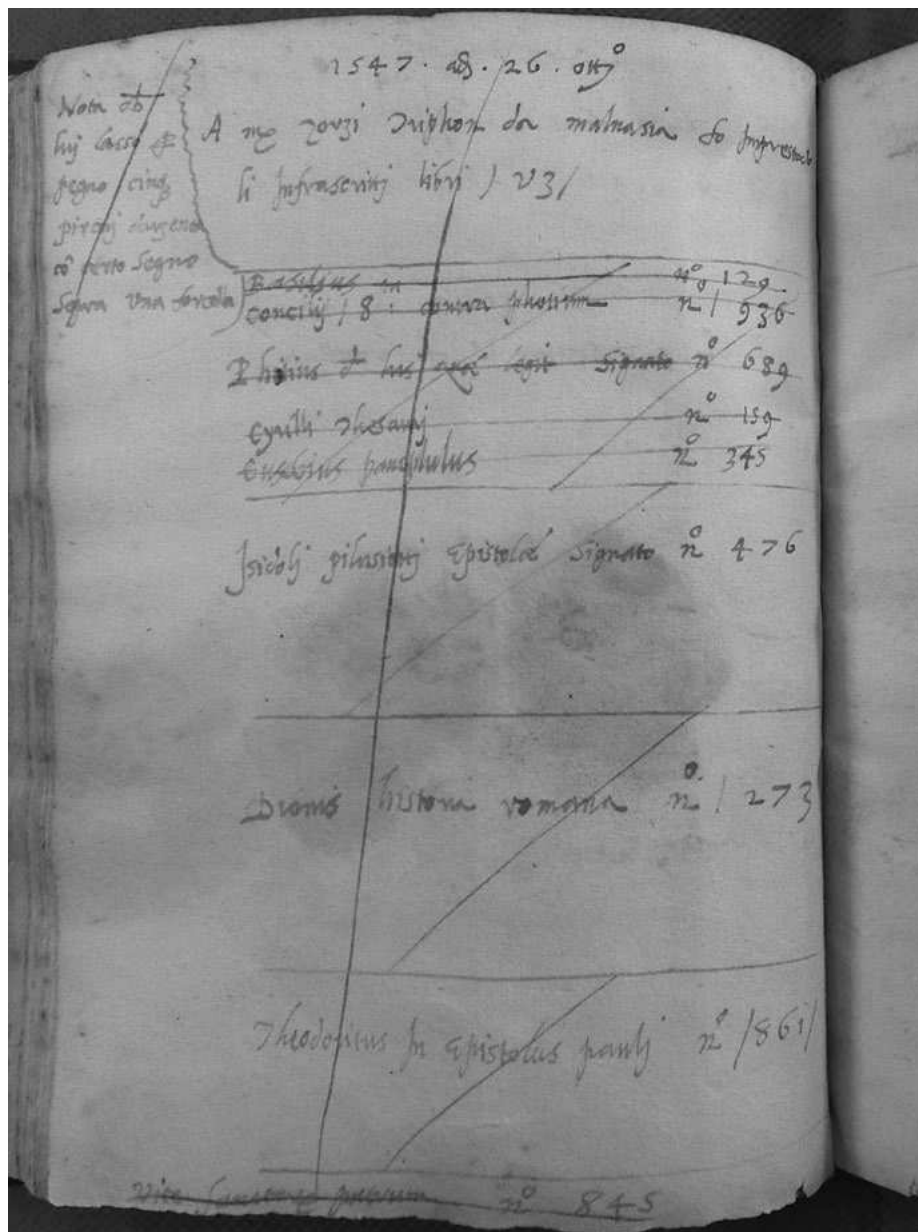 1547 · adj · 26 · ottº
Nota ch
luj lassò p
pegno cinq
pironj d'argento
cō certo segno
sopra una forcella
A mº zorzi Triphon da malvasia fo Imprestado
li Infrascrittj libri / v3/
Basilius in nº 129
Concilij / 8 : contra photium n / 936
signato nº 689
Cyrilli Thesaurj nº 159
Eusebius nº 345
Isidolj pilusiotij Epistolae signato nº 476
Dionis historia romana nº / 273
Theodoritus In Epistolas paulj nº /861/
Vite Sanctorum patrum nº 845